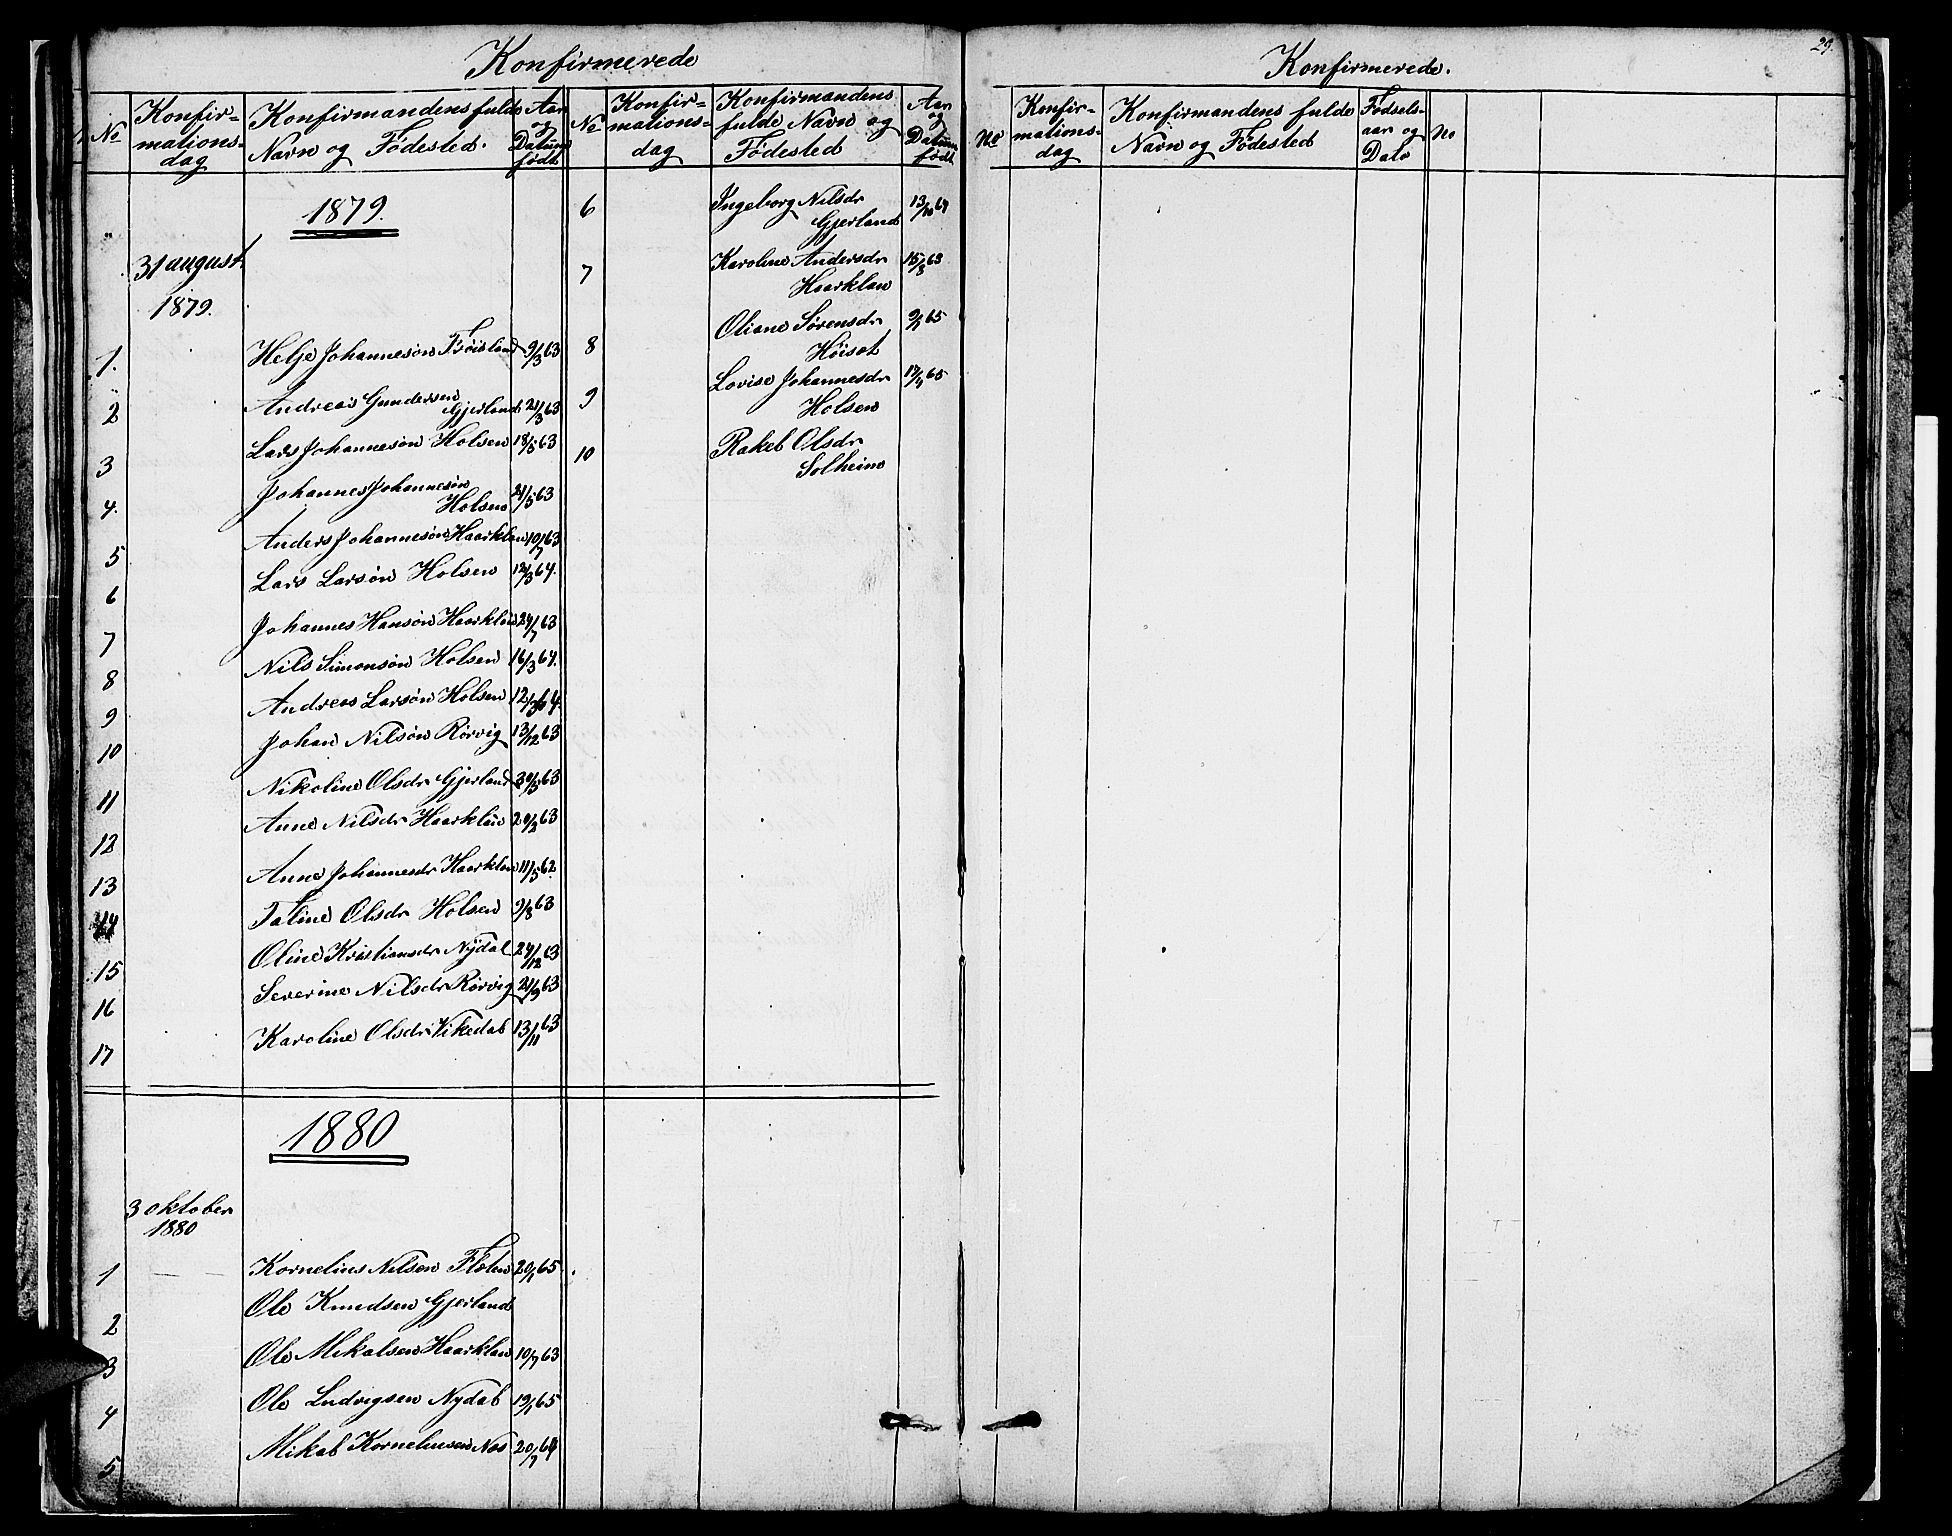 Konfirmerede
No
Konfir-
mations-
dag
Konfirmandens fulde
Navn og Fødested.
Aar
og
Datum
født
No
Konfir-
mations-
dag
Konfirmandens
fulde Navn og
Fødested
Aar
og
Datum
født
1879.
31 august
1879.
1. Helje Johannesøn Frøisland 9/3 63
2 Andreas Gundersen
Gjerland 21/3 63
3 Lars Johannesøn Holsen 18/5 63
4. Johannes Johannesøn
Holsen 21/5 63
5 Anders Johannesøn Haarklau 10/7 63
6 Lars Larsøn Holsen 12/3 64.
7 Johannes Hansøn Haarklau 24/7 63
8 Nils Simonsøn Holsen 16/3 64.
9 Andreas Larsøn Holsen 12/3 64.
10 Johan Nilsøn Rørvig 13/12 63
11 Nikoline Olsdr Gjerland 30/5 63
12 Anne Nilsdr Haarklau 20/2 63
13 Anne Johannesdr Haarklau 11/5 62.
14 Taline Olsdr Holsen 9/8 63
15 Oline Kristiansdr Nydal 24/12 63
16 Severine Nilsdr Rørvig 21/9 63
17 Karoline Olsdr Vikedal 13/11 63
1880
3 oktober
1880
1 Kornelius Nilsen Flølu 20/1 65
2 Ole Knudsen Gjerland
3 Ole Mikalsen Haarklau 10/7 63
4 Ole Ludvigsen Nydal 19/1 65
5 Mikal Korneliusen Nes 20/7 64
6 Ingeborg Nilsdr
Gjerland 13/10 64
7 Karoline Andersdr
Haarklau 15/8 63
8 Oliane Sørensdr
Höiset 9/1 65
9 Lovise Johannesdr
Holsen 65
10 Rakel Olsdr
Solheim
29.
Konfirmerede.
No
Konfir-
mations-
dag
Konfirmandens fulde
Navn og Fødested
Fødsels-
aar og
Dato
No